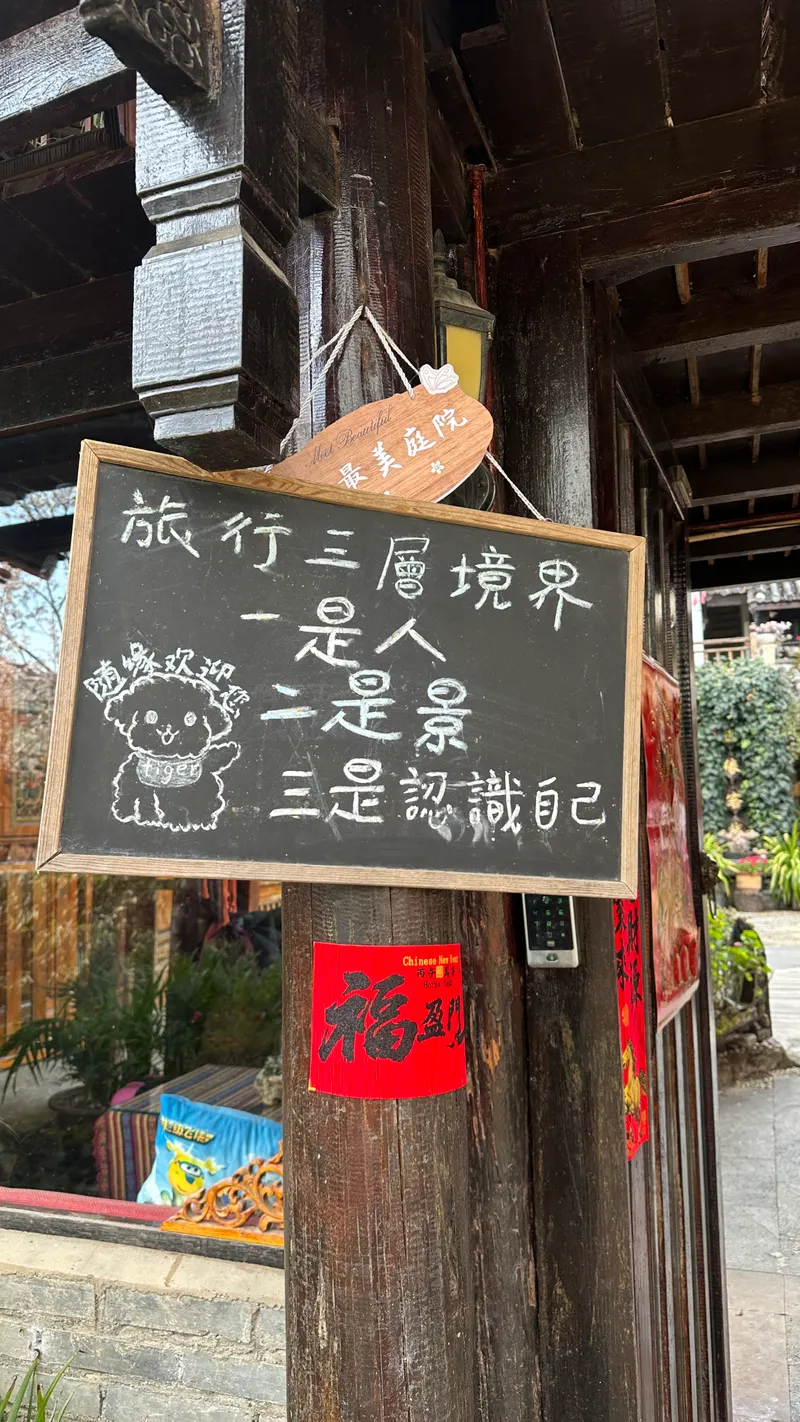 Meet Beautiful
最美庭院
旅行三層境界
一是人
二是景
三是認識自己
随缘欢迎您
tiger
Chinese New Year
Horse Year
福盈門